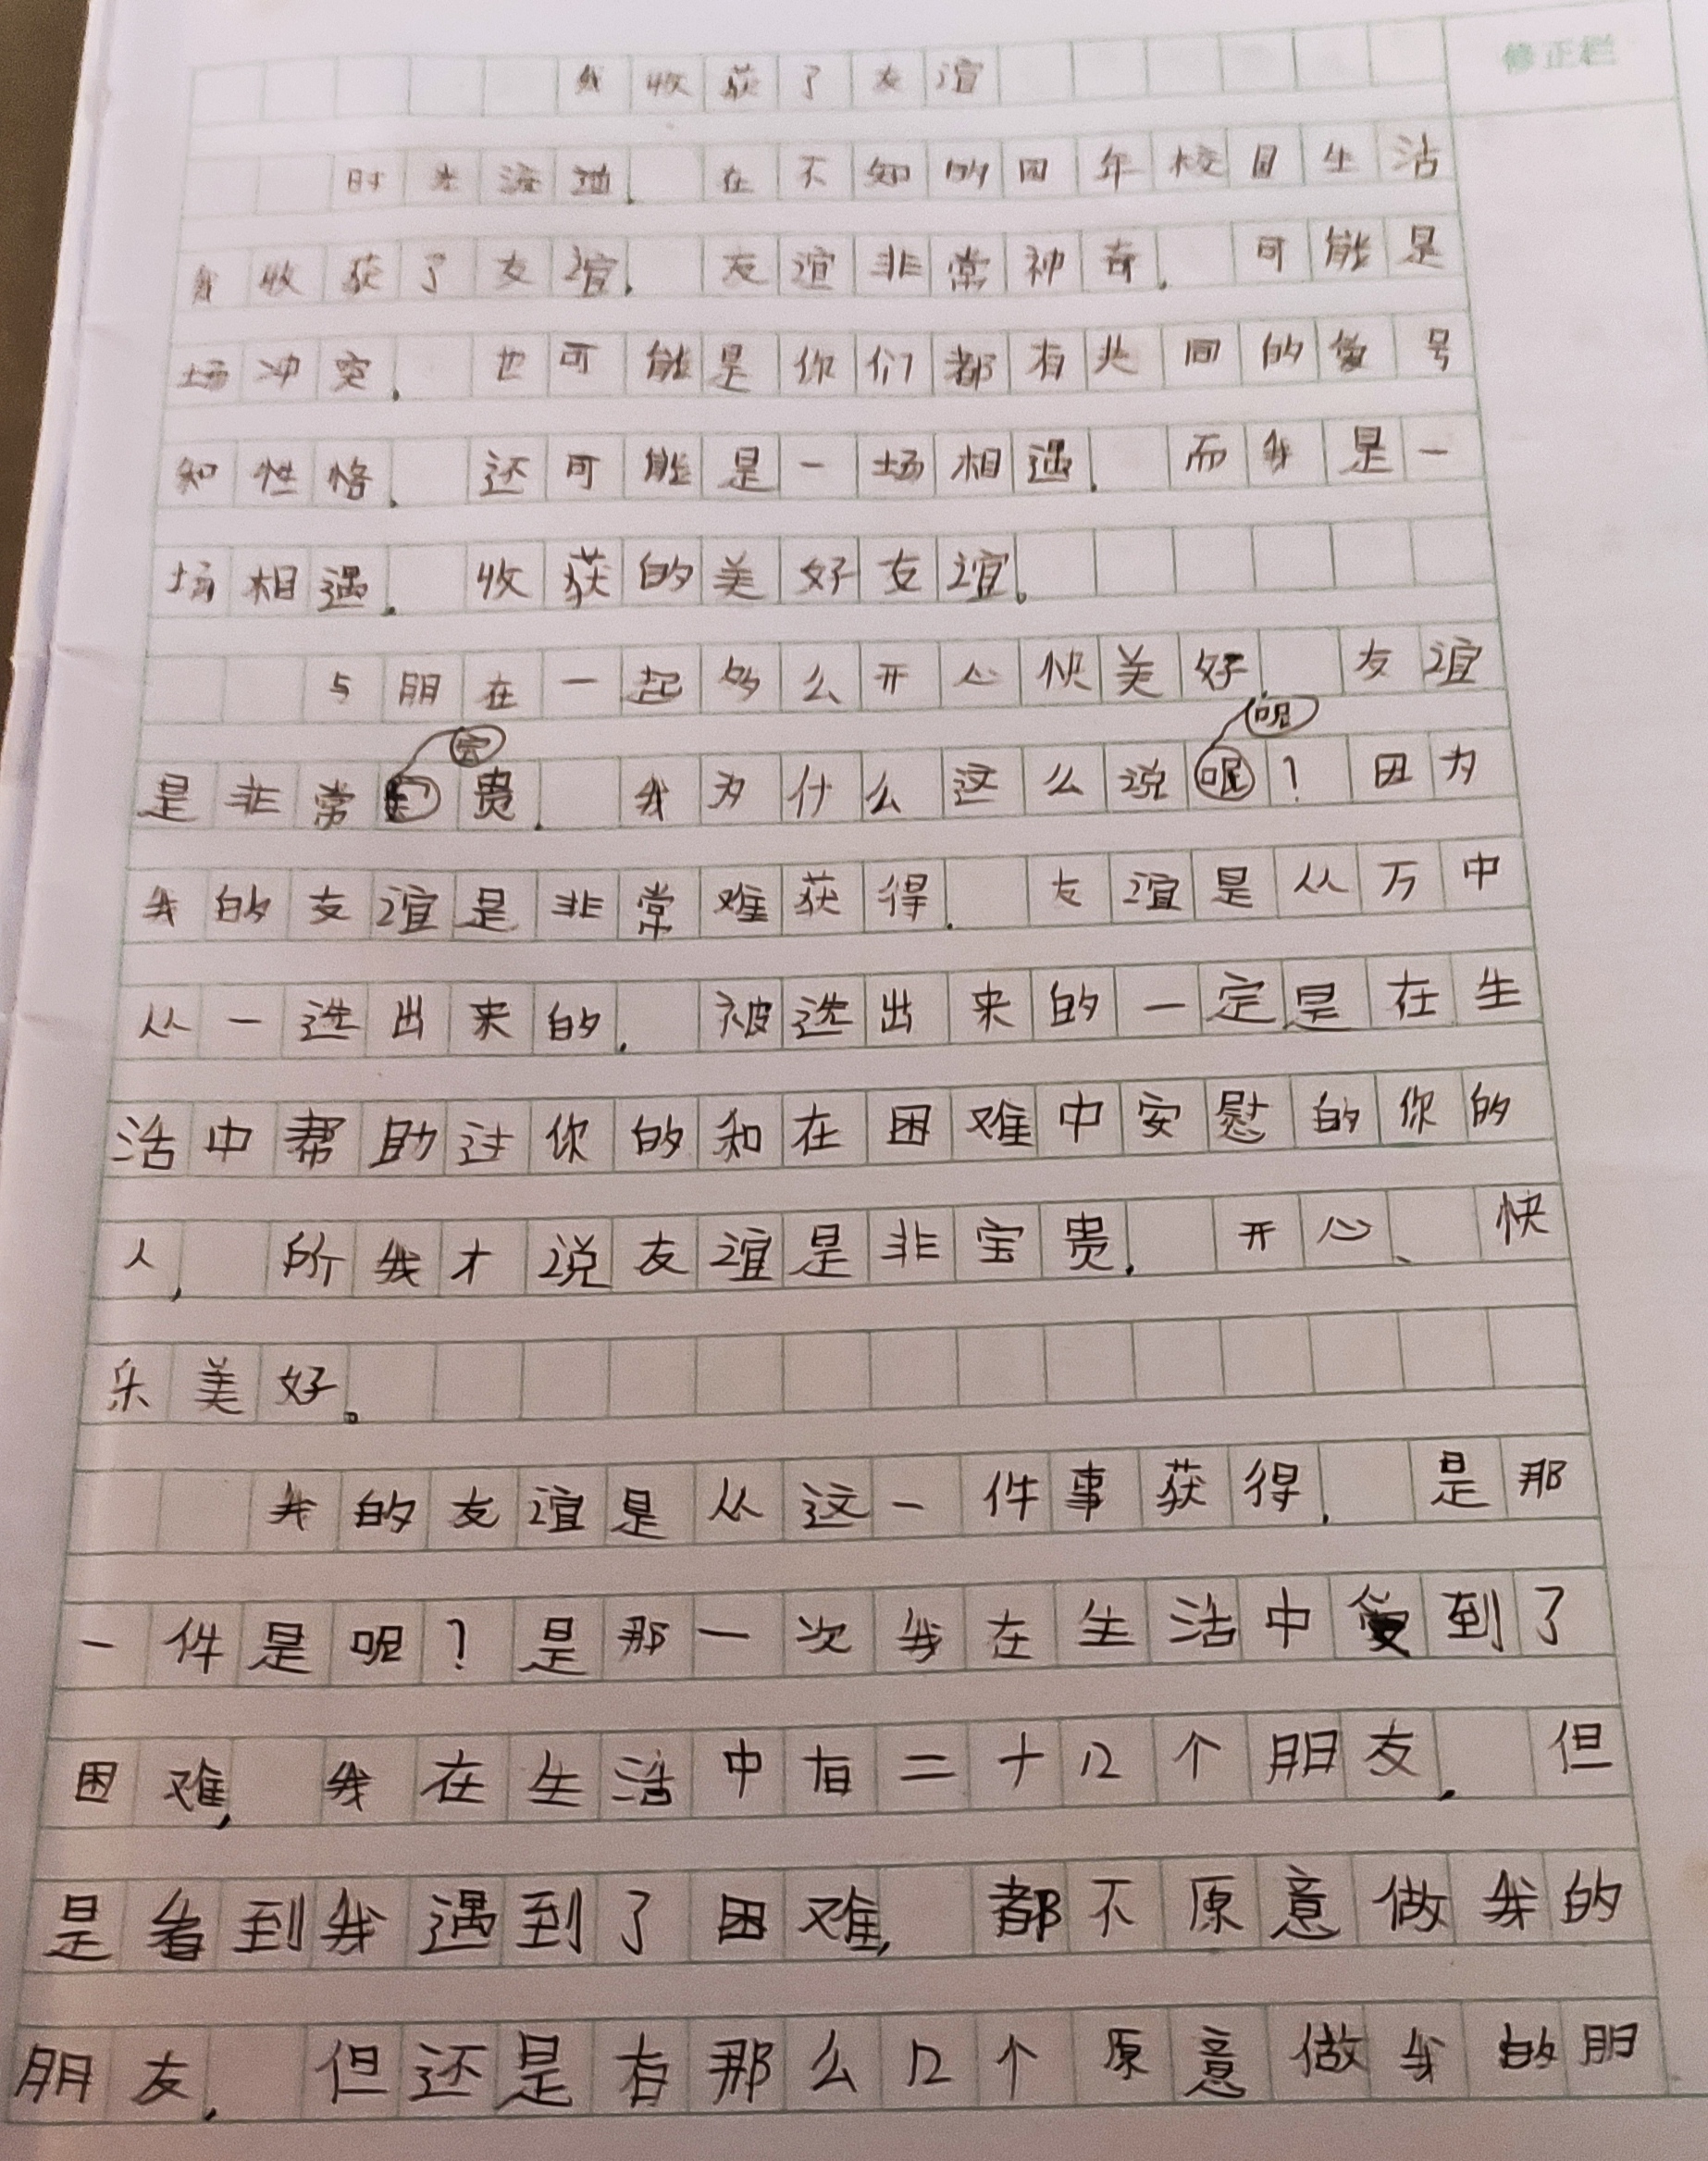 修正栏
我收获了友谊
时光流逝，在不知的四年校园生活
我收获了友谊，友谊非常神奇，可能是
场冲突，也可能是你们都有共同的爱号
和性格，还可能是一场相遇，而我是一
场相遇，收获的美好友谊。
与朋在一起多么开心快美好，友谊
宝 呢
是非常贵，我为什么这么说呢？因为
我的友谊是非常难获得，友谊是从万中
从一选出来的，被选出来的一定是在生
活中帮助过你的和在困难中安慰的你的
人，所我才说友谊是非宝贵，开心、快
乐美好。
我的友谊是从这一件事获得，是那
一件是呢？是那一次我在生活中受到了
困难，我在生活中有二十几个朋友，但
是看到我遇到了困难，都不原意做我的
朋友，但还是有那么几个原意做我的朋